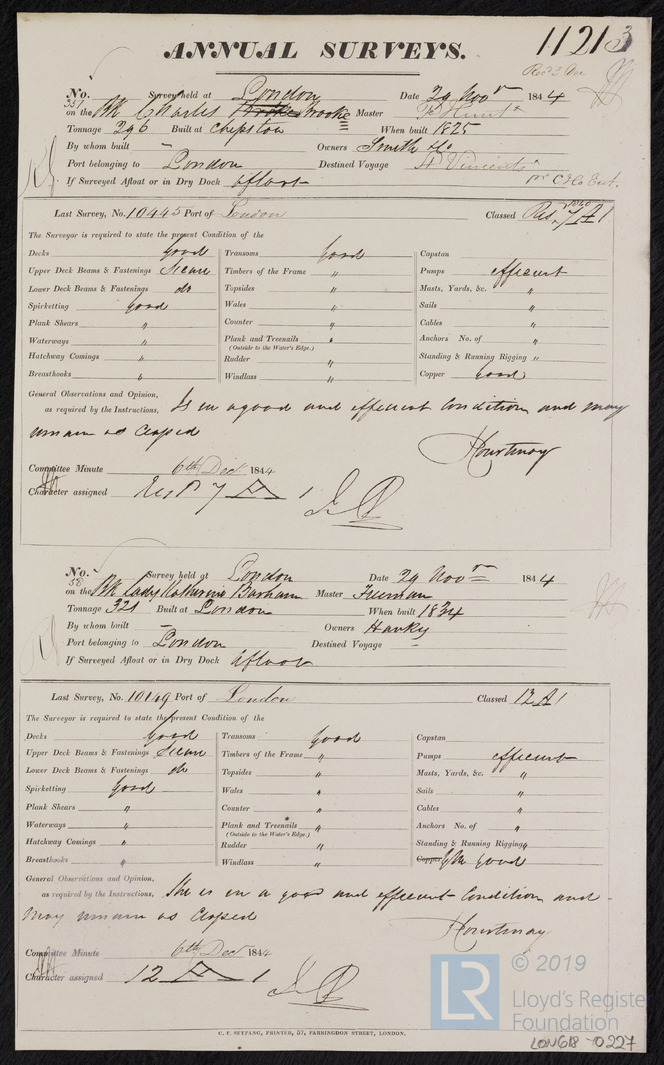 ANNUAL SURVEYS.
11213
No. 351 Survey held at London Date 29 Novr 1844
on the Bk Charles Brooke Master
Tonnage 296 Built at Chepstow When built 1825
By whom built – Owners Smith & Co
Port belonging to London Destined Voyage St Vincents
If Surveyed Afloat or in Dry Dock afloat
Last Survey, No. 10445 Port of London Classed Res 7 A 1
The Surveyor is required to state the present Condition of the
Decks good Transoms Good Capstan
Upper Deck Beams & Fastenings Secure Timbers of the Frame " Pumps efficient
Lower Deck Beams & Fastenings do Topsides " Masts, Yards, &c. "
Spirketting good Wales " Sails "
Plank Shears " Counter " Cables "
Waterways " Plank and Treenails " Anchors No. of "
(Outside to the Water's Edge.)
Hatchway Comings " Rudder " Standing & Running Rigging "
Breasthooks " Windlass " Copper good
General Observations and Opinion,
as required by the Instructions, Is in a good and efficient Condition and may
remain as Classed
Courtnay
Committee Minute 6th Dec 1844
Character assigned Res 7 A 1
No. 58 Survey held at London Date 29 Novr 1844
on the Bk Lady Katherine Barham Master Freeman
Tonnage 321 Built at London When built 1834
By whom built – Owners Hanky
Port belonging to London Destined Voyage –
If Surveyed Afloat or in Dry Dock afloat
Last Survey, No. 10149 Port of London Classed 12 A 1
The Surveyor is required to state the present Condition of the
Decks Good Transoms Good Capstan
Upper Deck Beams & Fastenings Secure Timbers of the Frame " Pumps efficient
Lower Deck Beams & Fastenings do Topsides " Masts, Yards, &c. "
Spirketting Good Wales " Sails "
Plank Shears " Counter " Cables "
Waterways " Plank and Treenails " Anchors No. of "
(Outside to the Water's Edge.)
Hatchway Comings " Rudder " Standing & Running Rigging "
Breasthooks " Windlass " Copper YM good
General Observations and Opinion,
as required by the Instructions, She is in a good and efficient Condition and
may remain as Classed
Courtnay
Committee Minute 6th Dec 1844
Character assigned 12 A 1
C. F. SEYFANG, PRINTER, 57, FARRINGDON STREET, LONDON.
LR © 2019
Lloyd's Register
Foundation
LON618-0227